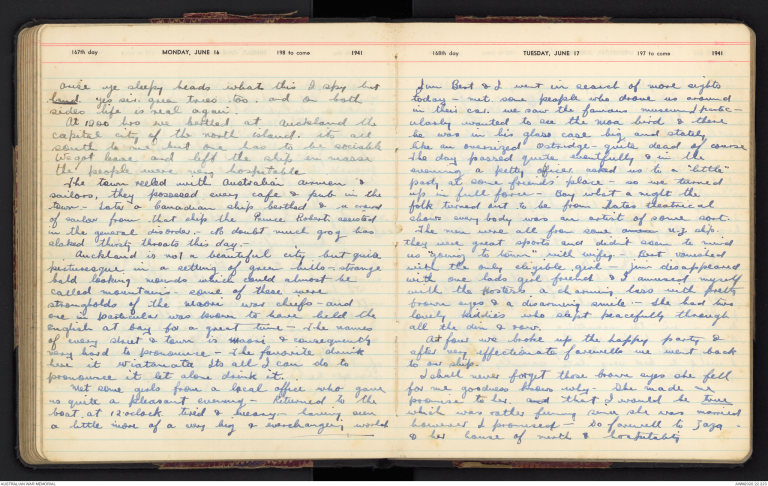 167th day MONDAY, JUNE 16 198 to come 1941
Arise ye sleepy heads what this I spy but
land. yes sir. green trees too. and on both
sides life is real again.
At 1200 hrs we berthed at Auckland the
capital city of the north island. its all
south to me but one has to be sociable
We got leave and left the ship in masse
the people were very hospitable
The town reeled with Australian airmen &
sailors, they possessed every cafe & pub in the
town - later a Canadian ship berthed & a crowd
of sailors from that ship the Prince Robert assisted
in the general disorder. - No doubt much grog has
slaked thirsty throats this day. -
Auckland is not a beautiful city but quite
picturesque in a setting of green hills - strange
bald looking mounds which could almost be
called mountains - some of these were
strongholds of the maori war chiefs - and
one in particular was known to have held the
english at bay for a great time - The names
of every street & town is maori & consequently
very hard to pronounce - The favourite drink
here it Wiatamata its all I can do to
pronounce it let alone drink it.
Met some girls from a local office who gave
us quite a pleasant evening - Returned to the
boat at 12 oclock tired & weary - having seen
a little more of a very big & everchanging world
168th day TUESDAY, JUNE 17 197 to come 1941
Jim Best & I went in search of more sights
today - met some people who drove us around
in their car. we saw the famous museum & partic-
ularly wanted to see the moa bird & there
he was in his glass case big and stately
like an oversized ostridge - quite dead of course
The day passed quite eventfully & in the
evening a petty officer asked us to a "little"
party at some friends place - so we turned
up in full force - Boy what a night the
folk turned out to be from Hates theatrical
shows every body was an artist of some sort.
The men were all from some N.Z ship.
they were great sports and didnt seem to mind
us "going to town" with wifey. - Best vanished
with the only eligible girl - Jim disappeared
with one lads girl friend & I amused myself
with the hostess a charming lass with pretty
brown eyes & a disarming smile - She had two
lovely kiddies who slept peacefully through
all the din & row.
At four we broke up the happy party &
after very effectionate farewells we went back
to our ship.
I shall never forget those brown eyes she fell
for me goodness knows why - She made me
promise to her. and that I would be true
which was rather funny since she was married
however I promised - so farewell to
& her house of mirth & hospitality
AUSTRALIAN WAR MEMORIAL